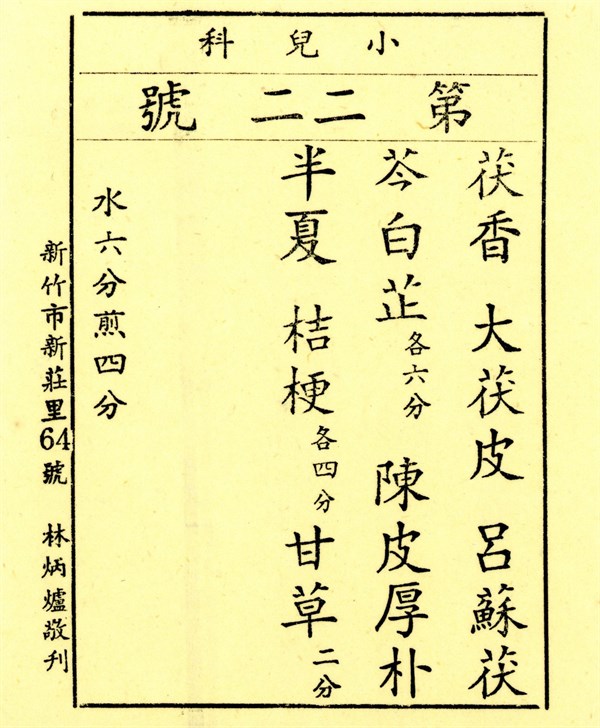 小兒科
第二二號
茯香 大茯皮 呂蘇茯
芩白芷各六分 陳皮厚朴
半夏 桔梗各四分 甘草二分
水六分煎四分
新竹市新莊里64號 林炳爐敬刊